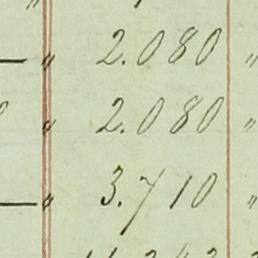 " 2.080 "
" 2.080 "
" 3.710 "